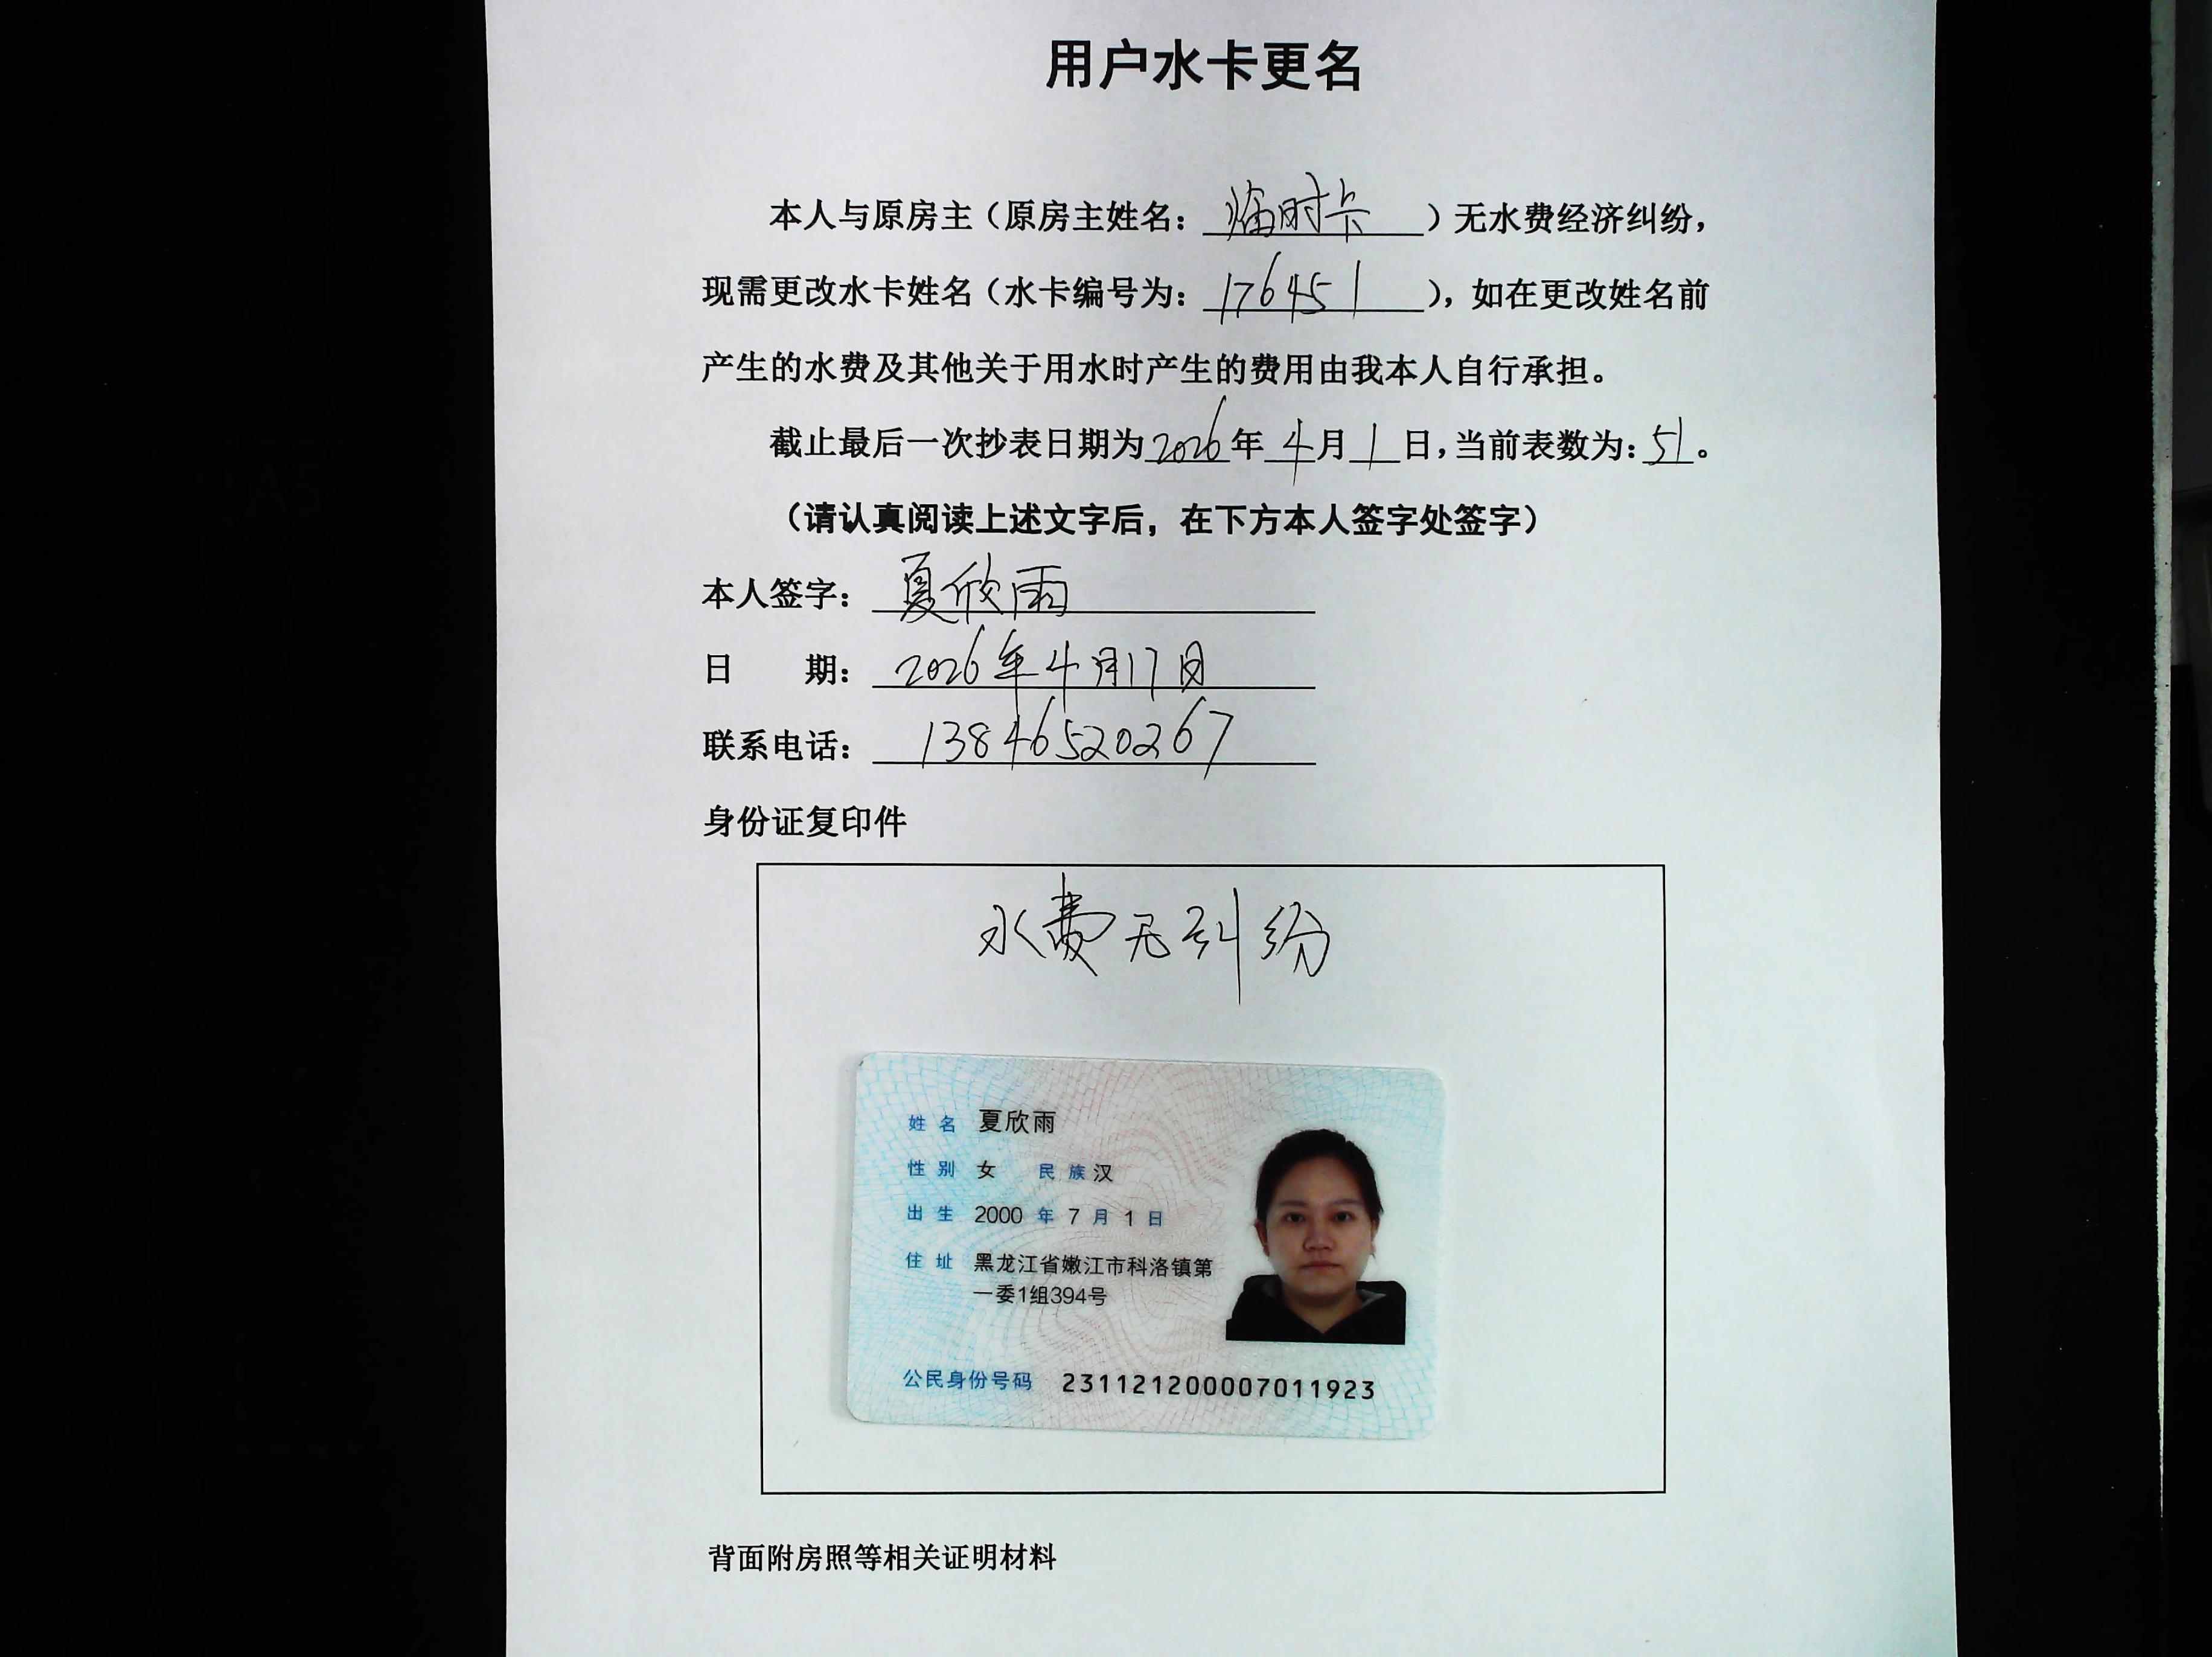 用户水卡更名
本人与原房主（原房主姓名：临时卡）无水费经济纠纷，
现需更改水卡姓名（水卡编号为：176451），如在更改姓名前
产生的水费及其他关于用水时产生的费用由我本人自行承担。
截止最后一次抄表日期为2026年4月1日，当前表数为：51。
（请认真阅读上述文字后，在下方本人签字处签字）
本人签字：夏欣雨
日 期：2026年4月17日
联系电话：13846520267
身份证复印件
水费无纠纷
姓名 夏欣雨
性别 女 民族 汉
出生 2000 年 7 月 1 日
住址 黑龙江省嫩江市科洛镇第
一委1组394号
公民身份号码 231121200007011923
背面附房照等相关证明材料